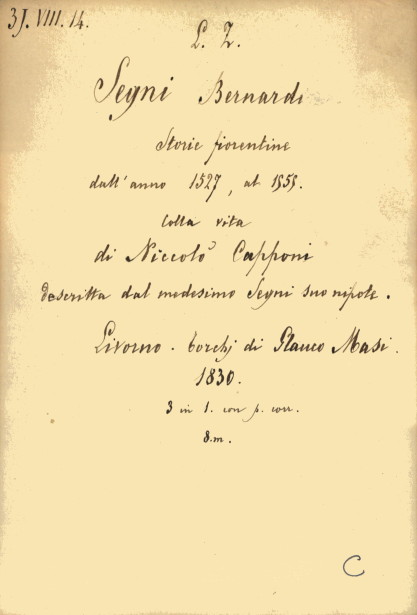 3J. VIII. 14.
L. Z.
Segni Bernardi
Storie fiorentine
dall' anno 1527, al 1555.
colla vita
di Niccolò Capponi
descritta dal medesimo Segni suo nipote.
Livorno. torchj di Glauco Masi.
1830.
3 in 1. con p. corr.
8. m.
C